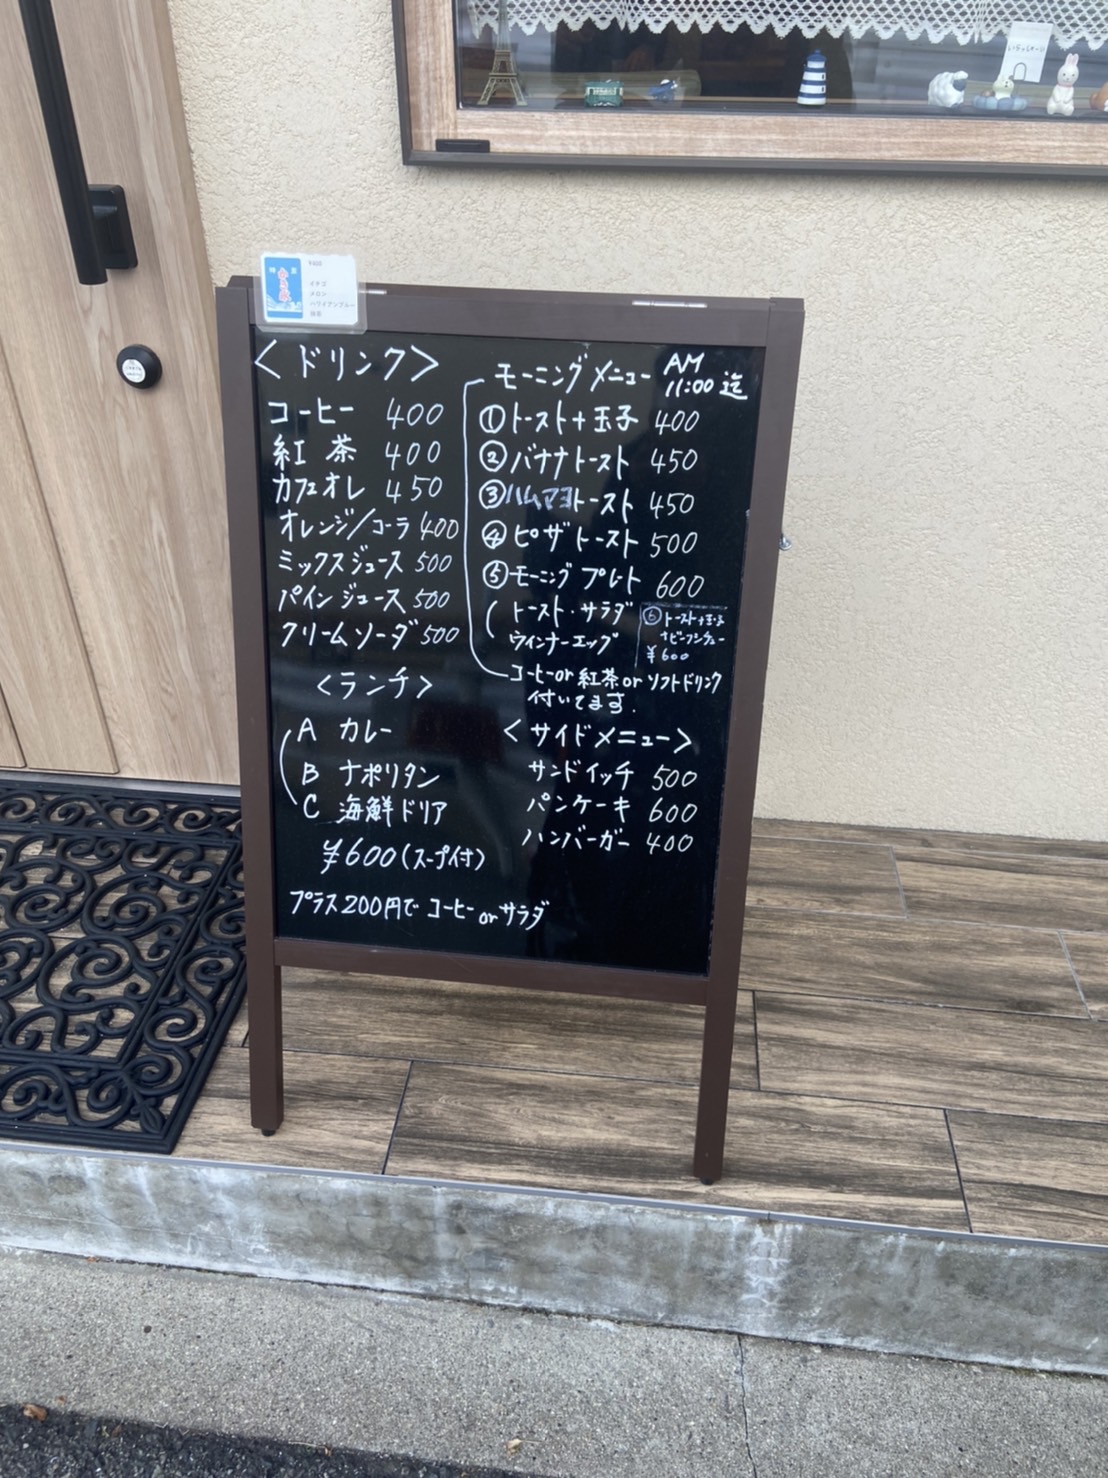 いらっしゃーい
時夏
かき氷
¥400
イチゴ
メロン
ハワイアンブルー
抹茶
<ドリンク>
コーヒー 400
紅茶 400
カフェオレ 450
オレンジ/コーラ 400
ミックスジュース 500
パインジュース 500
クリームソーダ 500
<ランチ>
A カレー
B ナポリタン
C 海鮮ドリア
¥600(スープ付)
プラス200円で コーヒー or サラダ
モーニングメニュー AM 11:00 迄
①トースト+玉子 400
②バナナトースト 450
③ハムマヨトースト 450
④ピザトースト 500
⑤モーニングプレート 600
トースト・サラダ
ウインナーエッグ
⑥トースト+玉子
+ビーフシチュー
¥600
コーヒーor紅茶orソフトドリンク
付いてます.
<サイドメニュー>
サンドイッチ 500
パンケーキ 600
ハンバーガー 400